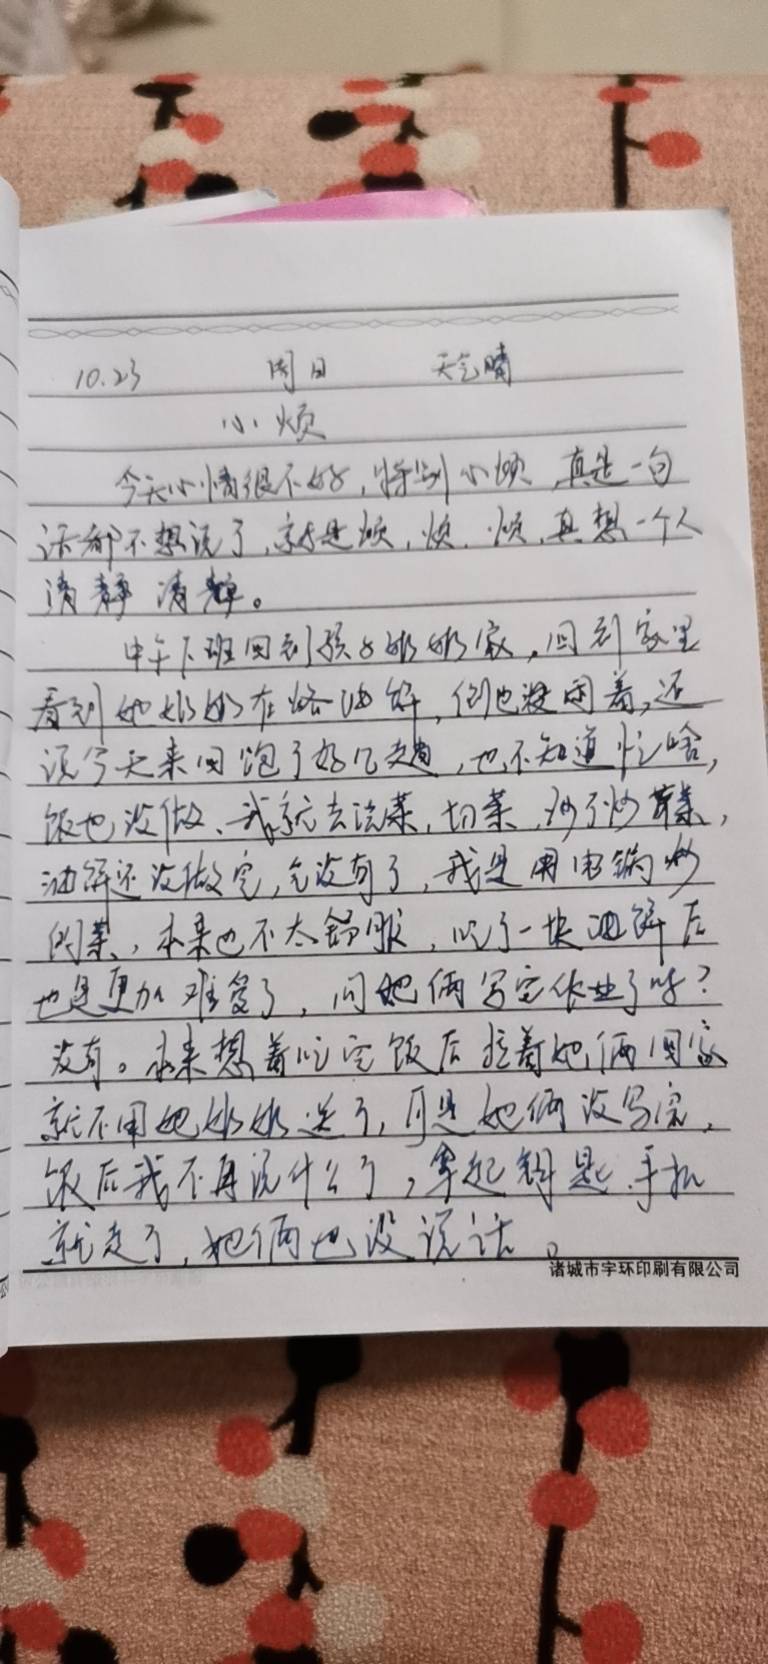 10.23 周日 天气晴
心烦
今天心情很不好,特别心烦,真是一句
话都不想说了,就是烦,烦,烦,真想一个人
清静清静。
中午下班回到孩子奶奶家,回到家里
看到她奶奶在烙油饼,倒也没闲着,还
说今天来回跑了好几趟,也不知道忙啥,
饭也没做、我就去洗菜,切菜,炒了炒菜,
油饼还没做完,气没有了,我是用电锅炒
的菜,本来也不太舒服,吃了一块油饼后
也是更加难受了,问她俩写完作业了吗?
没有。本来想着吃完饭后拉着她俩回家
就不用她奶奶送了,可是她俩没写完,
饭后我不再说什么了,拿起钥匙、手机
就走了,她俩也没说话。
诸城市宇环印刷有限公司